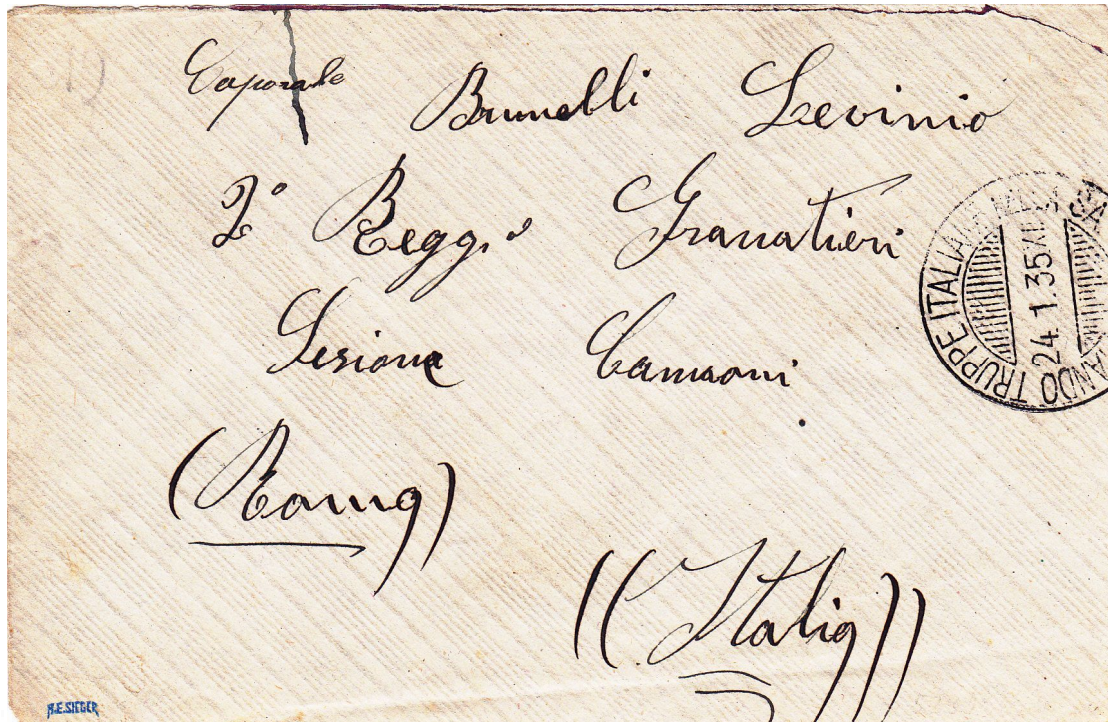 Caporale Brunelli Levinio
2° Regg.o Granatieri
Sezione Cannoni
(Roma)
((Italia))
COMANDO TRUPPE ITALIANE NELLA SA
24.1.35 XII
H.E.SIEGER